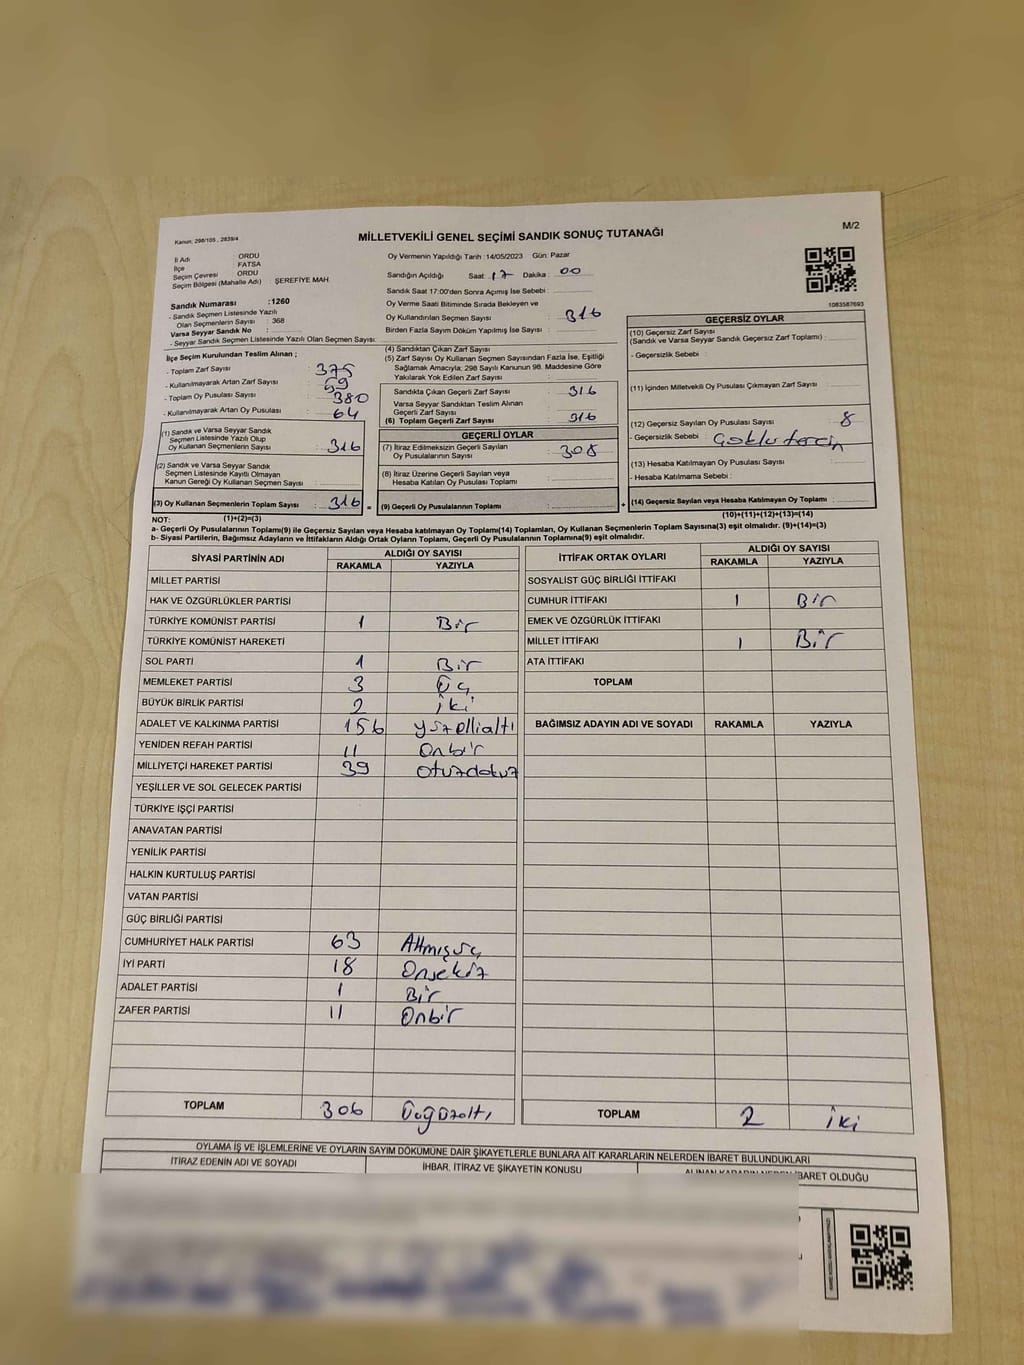 Kanun: 298/105 , 2839/4
MİLLETVEKİLİ GENEL SEÇİMİ SANDIK SONUÇ TUTANAĞI
M/2
İl Adı ORDU
İlçe FATSA
Seçim Çevresi ORDU
Seçim Bölgesi (Mahalle Adı) ŞEREFİYE MAH
Sandık Numarası :1260
- Sandık Seçmen Listesinde Yazılı
Olan Seçmenlerin Sayısı : 368
Varsa Seyyar Sandık No :
- Seyyar Sandık Seçmen Listesinde Yazılı Olan Seçmen Sayısı:
Oy Vermenin Yapıldığı Tarih :14/05/2023 Gün: Pazar
Sandığın Açıldığı Saat : 17 Dakika : 00
Sandık Saat 17:00'den Sonra Açımış İse Sebebi :
Oy Verme Saati Bitiminde Sırada Bekleyen ve
Oy Kullandırılan Seçmen Sayısı : 316
Birden Fazla Sayım Döküm Yapılmış İse Sayısı :
1083587693
İlçe Seçim Kurulundan Teslim Alınan ;
- Toplam Zarf Sayısı : 375
- Kullanılmayarak Artan Zarf Sayısı : 59
- Toplam Oy Pusulası Sayısı : 380
- Kullanılmayarak Artan Oy Pusulası : 64
(1) Sandık ve Varsa Seyyar Sandık
Seçmen Listesinde Yazılı Olup
Oy Kullanan Seçmenlerin Sayısı : 316
(2) Sandık ve Varsa Seyyar Sandık
Seçmen Listesinde Kayıtlı Olmayan
Kanun Gereği Oy Kullanan Seçmen Sayısı :
(3) Oy Kullanan Seçmenlerin Toplam Sayısı : 316
(1)+(2)=(3)
(4) Sandıktan Çıkan Zarf Sayısı :
(5) Zarf Sayısı Oy Kullanan Seçmen Sayısından Fazla İse, Eşitliği
Sağlamak Amacıyla; 298 Sayılı Kanunun 98. Maddesine Göre
Yakılarak Yok Edilen Zarf Sayısı :
Sandıkta Çıkan Geçerli Zarf Sayısı : 316
Varsa Seyyar Sandıktan Teslim Alınan
Geçerli Zarf Sayısı :
(6) Toplam Geçerli Zarf Sayısı : 316
GEÇERLİ OYLAR
(7) İtiraz Edilmeksizin Geçerli Sayılan
Oy Pusulalarının Sayısı : 308
(8) İtiraz Üzerine Geçerli Sayılan veya
Hesaba Katılan Oy Pusulası Toplamı :
= (9) Geçerli Oy Pusulalarının Toplamı :
GEÇERSİZ OYLAR
(10) Geçersiz Zarf Sayısı
(Sandık ve Varsa Seyyar Sandık Geçersiz Zarf Toplamı) :
- Geçersizlik Sebebi :
(11) İçinden Milletvekili Oy Pusulası Çıkmayan Zarf Sayısı :
(12) Geçersiz Sayılan Oy Pusulası Sayısı : 8
- Geçersizlik Sebebi :
(13) Hesaba Katılmayan Oy Pusulası Sayısı :
- Hesaba Katılmama Sebebi :
+ (14) Geçersiz Sayılan veya Hesaba Katılmayan Oy Toplamı :
(10)+(11)+(12)+(13)=(14)
NOT:
a- Geçerli Oy Pusulalarının Toplamı(9) ile Geçersiz Sayılan veya Hesaba katılmayan Oy Toplamı(14) Toplamları, Oy Kullanan Seçmenlerin Toplam Sayısına(3) eşit olmalıdır. (9)+(14)=(3)
b- Siyasi Partilerin, Bağımsız Adayların ve İttifakların Aldığı Ortak Oyların Toplamı, Geçerli Oy Pusulalarının Toplamına(9) eşit olmalıdır.
SİYASİ PARTİNİN ADI ALDIĞI OY SAYISI
RAKAMLA YAZIYLA
MİLLET PARTİSİ
HAK VE ÖZGÜRLÜKLER PARTİSİ
TÜRKİYE KOMÜNİST PARTİSİ 1 Bir
TÜRKİYE KOMÜNİST HAREKETİ
SOL PARTİ 1 Bir
MEMLEKET PARTİSİ 3 Üç
BÜYÜK BİRLİK PARTİSİ 2 iki
ADALET VE KALKINMA PARTİSİ 156 yüzellialtı
YENİDEN REFAH PARTİSİ 11 Onbir
MİLLİYETÇİ HAREKET PARTİSİ 39 otuzdokuz
YEŞİLLER VE SOL GELECEK PARTİSİ
TÜRKİYE İŞÇİ PARTİSİ
ANAVATAN PARTİSİ
YENİLİK PARTİSİ
HALKIN KURTULUŞ PARTİSİ
VATAN PARTİSİ
GÜÇ BİRLİĞİ PARTİSİ
CUMHURİYET HALK PARTİSİ 63 Altmışüç
İYİ PARTİ 18 Onsekiz
ADALET PARTİSİ 1 Bir
ZAFER PARTİSİ 11 Onbir
TOPLAM 306 Üçyüzaltı
İTTİFAK ORTAK OYLARI ALDIĞI OY SAYISI
RAKAMLA YAZIYLA
SOSYALİST GÜÇ BİRLİĞİ İTTİFAKI
CUMHUR İTTİFAKI 1 Bir
EMEK VE ÖZGÜRLÜK İTTİFAKI
MİLLET İTTİFAKI 1 Bir
ATA İTTİFAKI
TOPLAM
BAĞIMSIZ ADAYIN ADI VE SOYADI RAKAMLA YAZIYLA
TOPLAM 2 iki
OYLAMA İŞ VE İŞLEMLERİNE VE OYLARIN SAYIM DÖKÜMÜNE DAİR ŞİKAYETLERLE BUNLARA AİT KARARLARIN NELERDEN İBARET BULUNDUKLARI
İTİRAZ EDENİN ADI VE SOYADI İHBAR, İTİRAZ VE ŞİKAYETİN KONUSU ALINAN KARARIN NEDEN İBARET OLDUĞU